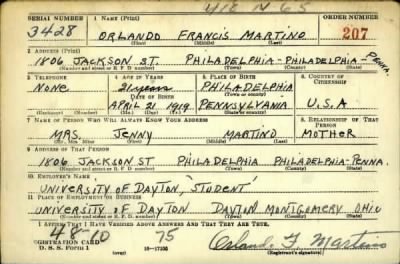 418 N 65
SERIAL NUMBER 1. NAME (Print) ORDER NUMBER
3428 ORLANDO FRANCIS MARTINO 207
(First) (Middle) (Last)
2. ADDRESS (Print)
1806 JACKSON ST. PHILADELPHIA-PHILADELPHIA-PENNA.
(Number and street or R. F. D. number) (Town) (County) (State)
3. TELEPHONE 4. AGE IN YEARS 5. PLACE OF BIRTH 6. COUNTRY OF CITIZENSHIP
NONE 21 years PHILADELPHIA
DATE OF BIRTH (Town or county)
APRIL 21 1919 PENNSYLVANIA U.S.A
(Exchange) (Number) (Mo.) (Day) (Yr.) (State or country)
7. NAME OF PERSON WHO WILL ALWAYS KNOW YOUR ADDRESS 8. RELATIONSHIP OF THAT PERSON
MRS. JENNY MARTINO MOTHER
(Mr., Mrs., Miss) (First) (Middle) (Last)
9. ADDRESS OF THAT PERSON
1806 JACKSON ST PHILADELPHIA PHILADELPHIA-PENNA.
(Number and street or R. F. D. number) (Town) (County) (State)
10. EMPLOYER'S NAME
UNIVERSITY OF DAYTON, 'STUDENT'
11. PLACE OF EMPLOYMENT OR BUSINESS
UNIVERSITY OF DAYTON DAYTON MONTGOMERY OHIO
(Number and street or R. F. D. number) (Town) (County) (State)
I AFFIRM THAT I HAVE VERIFIED ABOVE ANSWERS AND THAT THEY ARE TRUE.
48 75
REGISTRATION CARD
D. S. S. Form 1 (over) 16-17105 Orlando F Martino
(Registrant's signature)